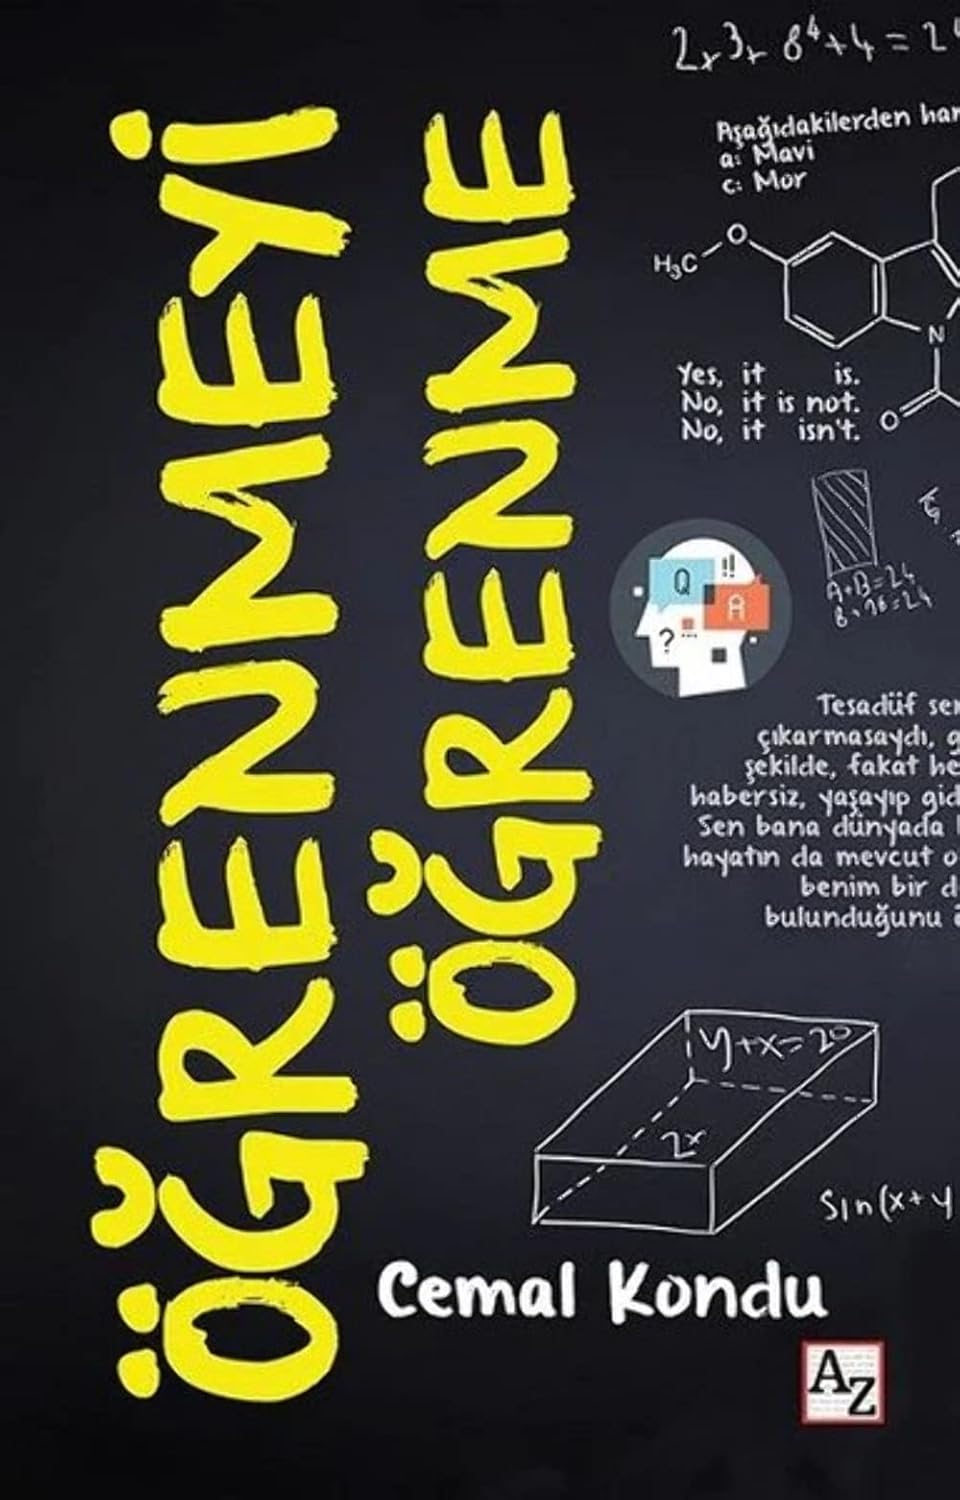 ÖĞRENMEYİ
ÖĞRENME
2x3x 8⁴+4=2
Aşağıdakilerden han
a: Mavi
c: Mor
H₃C
O
N
O
Yes, it is.
No, it is not.
No, it isn't.
A+B=24
8+16=24
Q
!!
A
?
Tesadüf sen
çıkarmasaydı, g
şekilde, fakat he
habersiz, yaşayıp gid
Sen bana dünyada
hayatın da mevcut o
benim bir d
bulunduğunu
y+x=20
2x
Sin(x+y
Cemal Kondu
AZ